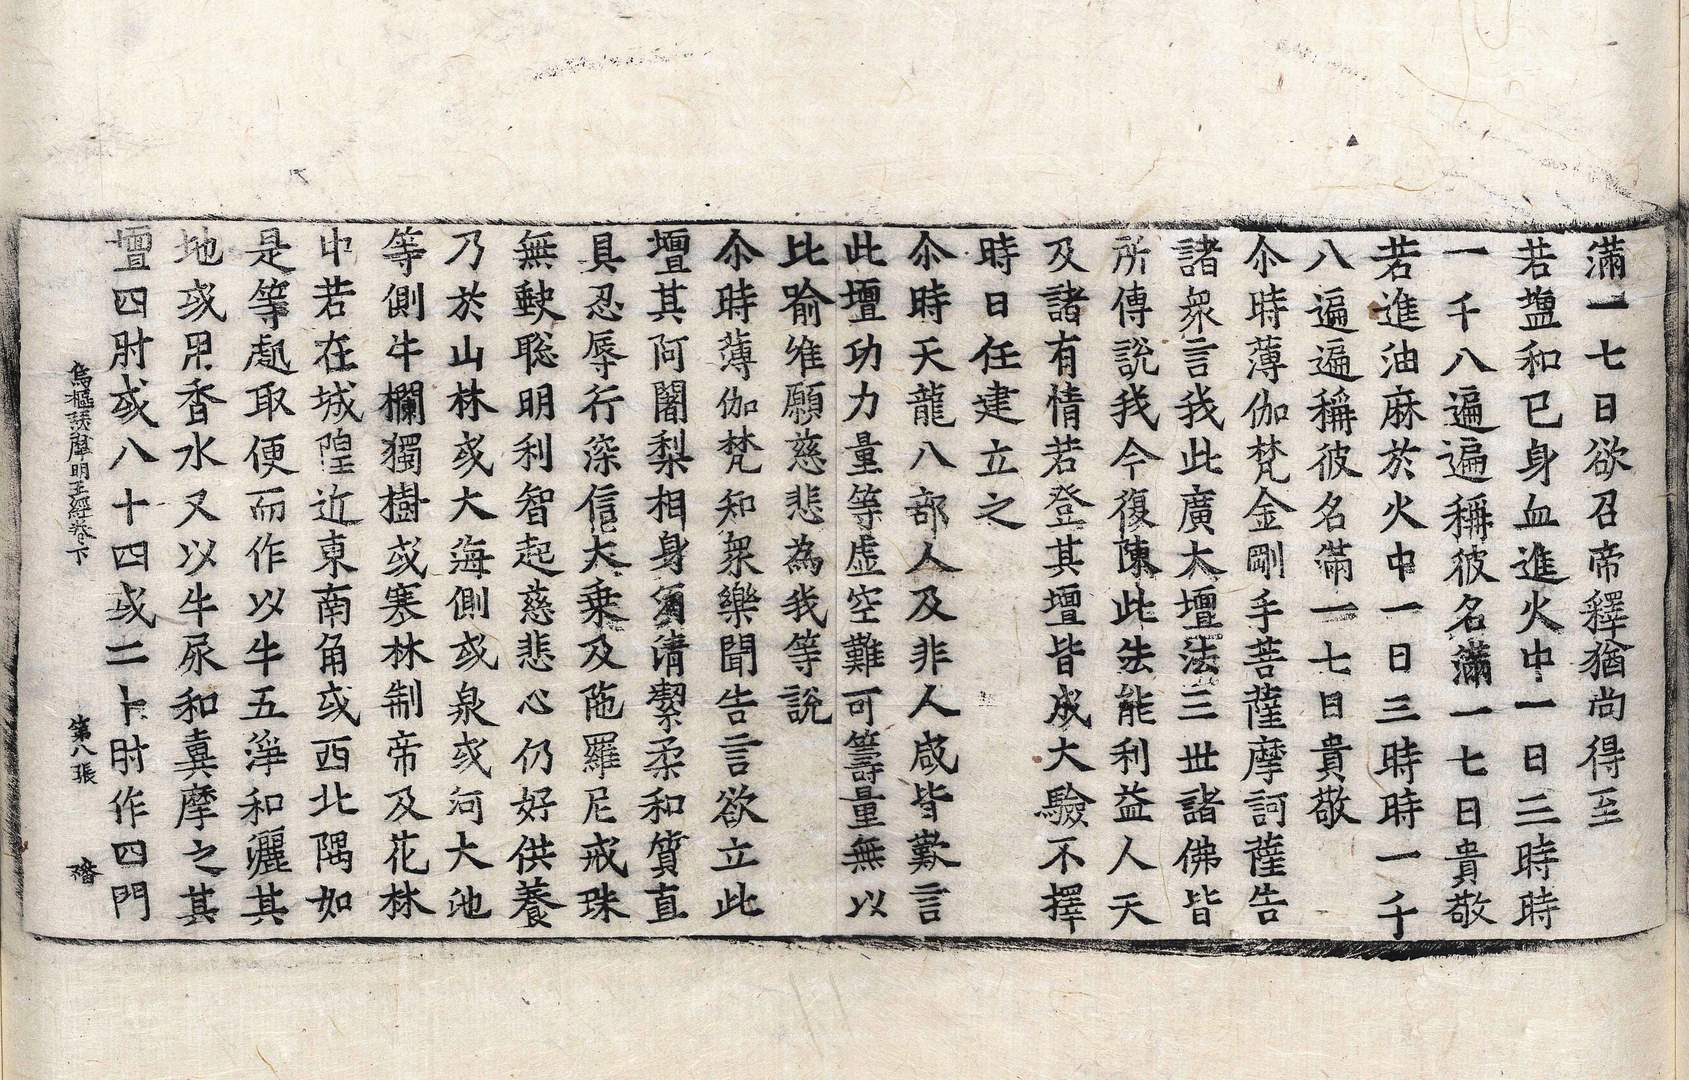 滿一七日欲召帝釋猶尚得至
若塩和已身血進火中一日三時時
一千八遍遍稱彼名滿一七日貴敬
若進油麻於火中一日三時時一千
八遍遍稱彼名滿一七日貴敬
尒時薄伽梵金剛手菩薩摩訶薩告
諸衆言我此廣大壇法三世諸佛皆
所傳說我今復陳此法能利益人天
及諸有情若登其壇皆成大驗不擇
時日任建立之
尒時天龍八部人及非人咸皆歎言
此壇功力量等虛空難可籌量無以
比喻唯願慈悲為我等說
尒時薄伽梵知衆樂聞告言欲立此
壇其阿闍梨相身須清潔柔和質直
具忍辱行深信大乘及陁羅尼戒珠
無缺聡明利智起慈悲心仍好供養
乃於山林或大海側或泉或河大池
等側牛欄獨樹或寒林制帝及花林
中若在城隍近東南角或西北隅如
是等處取便而作以牛五淨和灑其
地或用香水又以牛尿和糞摩之其
壇四肘或八十四或二十肘作四門
烏樞瑟摩明王經卷下 第八張